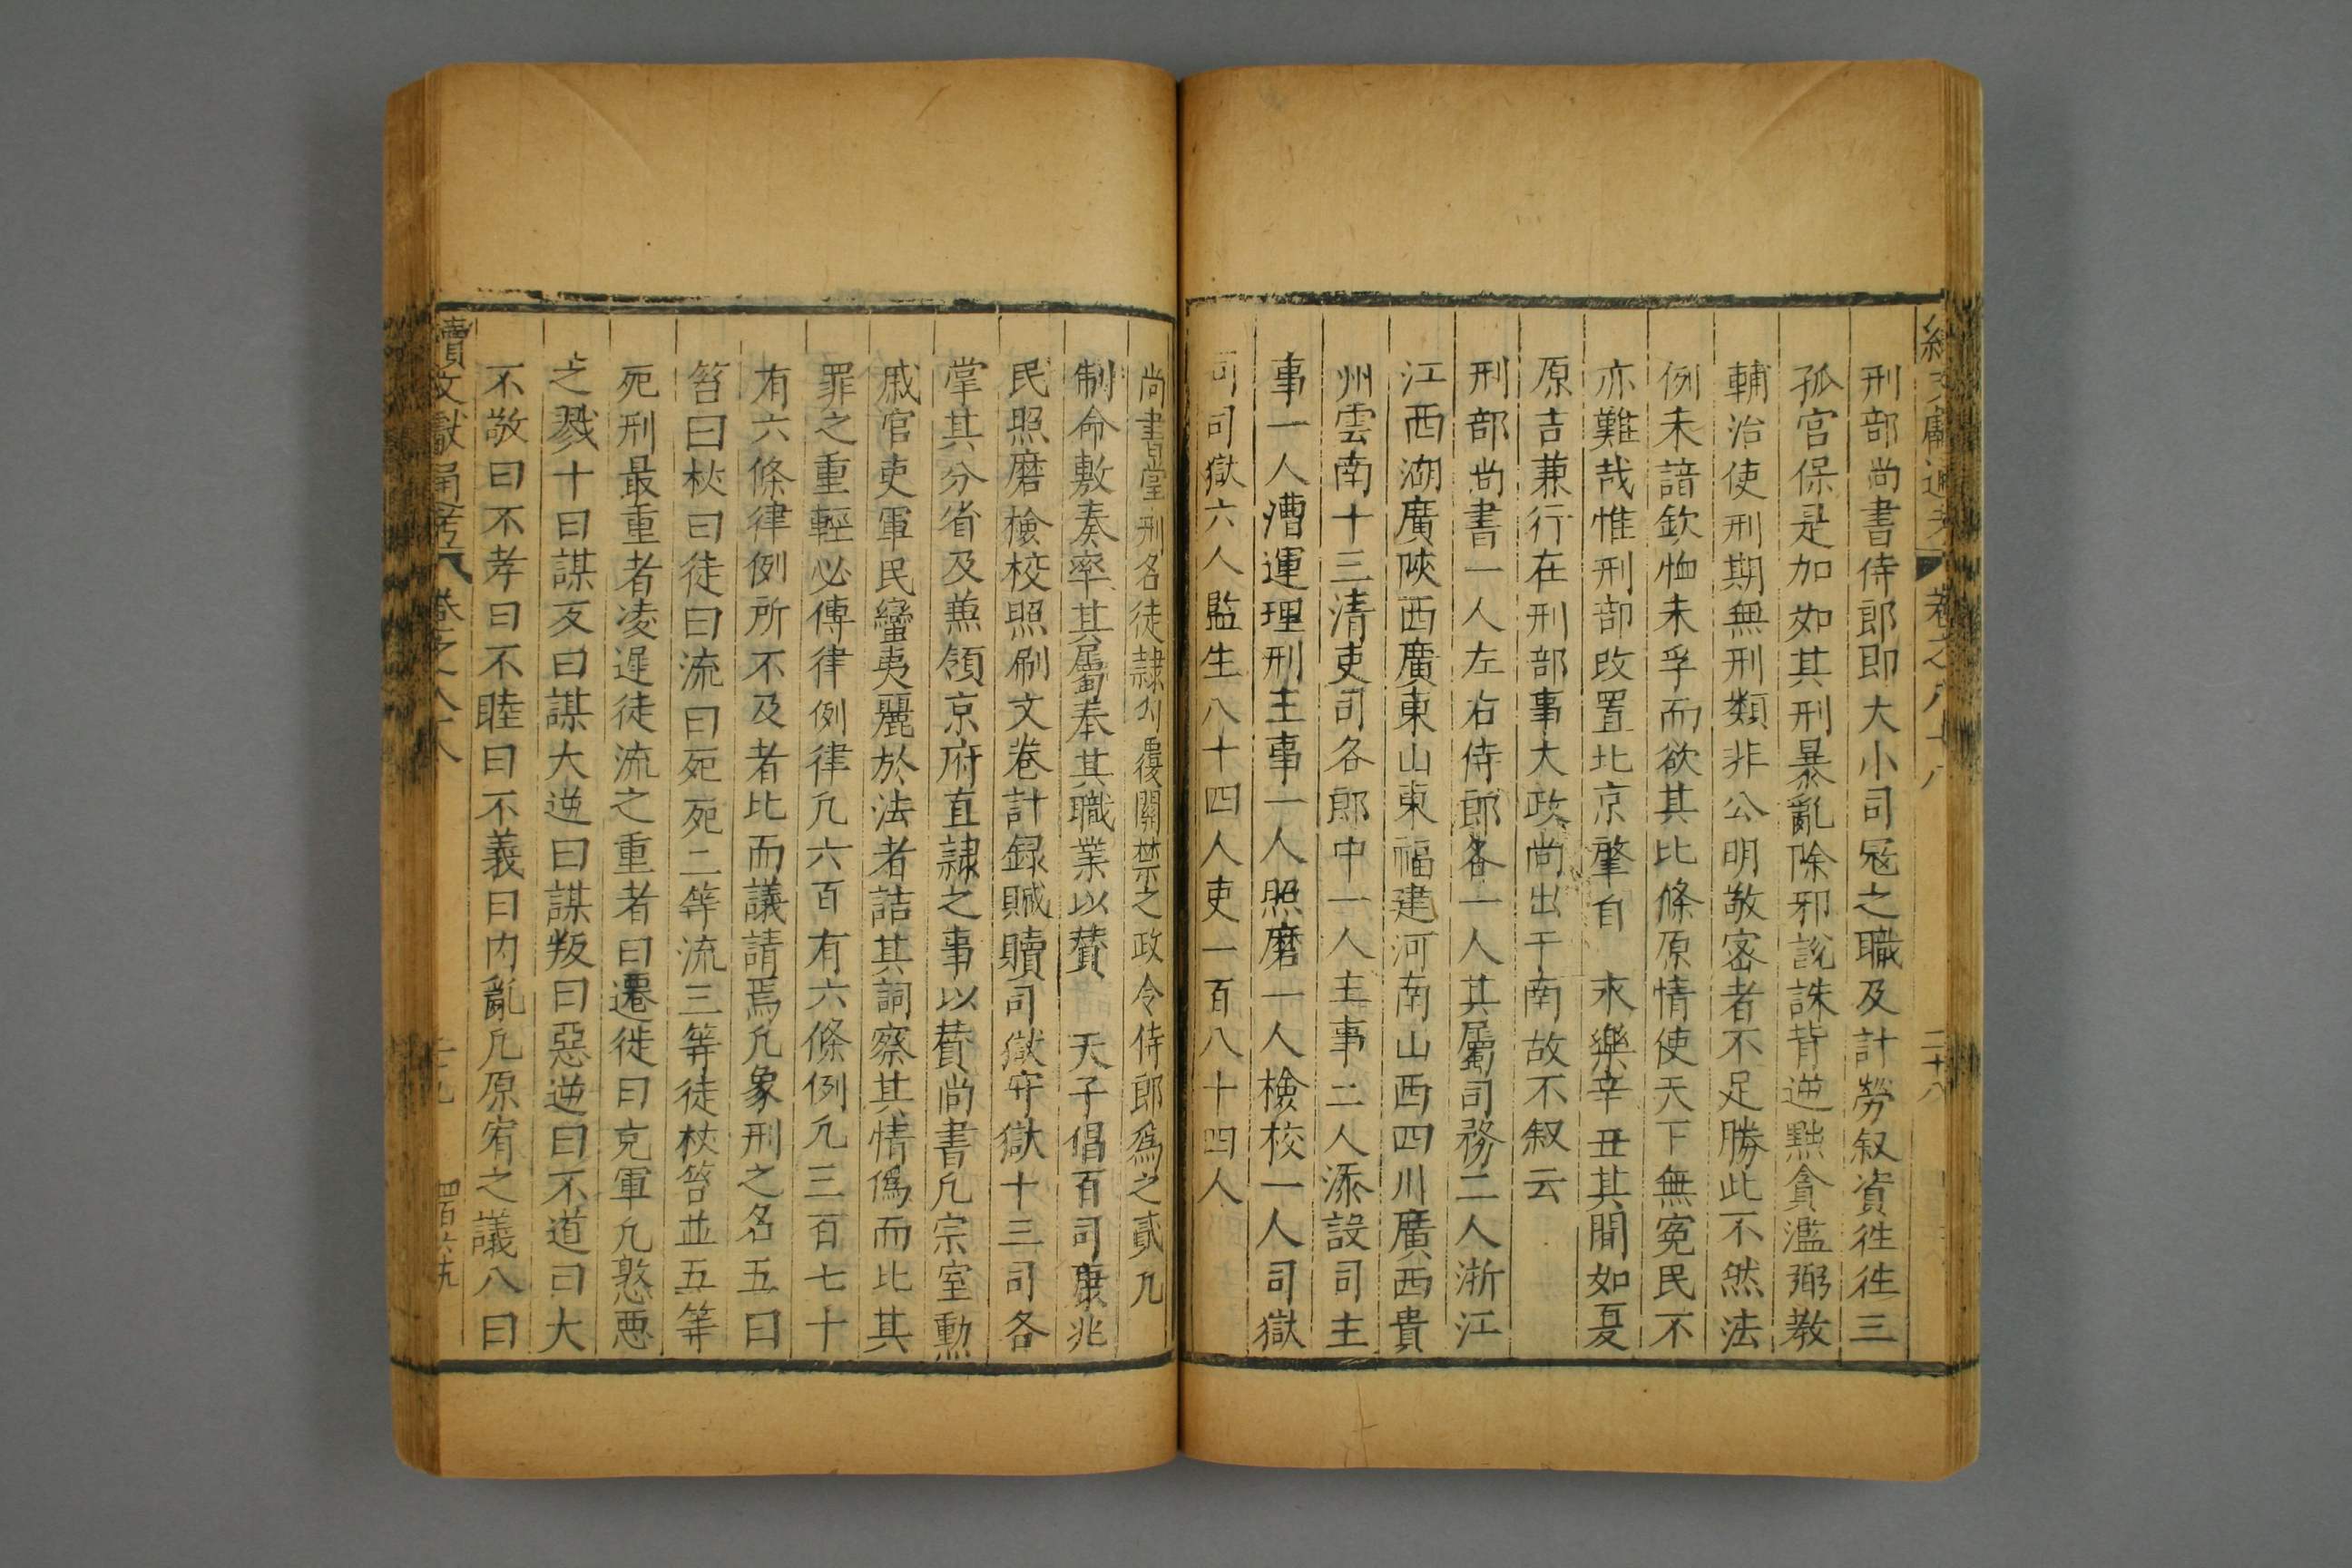 續文獻通考 卷之八十八 二十八
刑部尚書侍郎即大小司冦之職及計勞叙資徃徃三
孤宫保是加如其刑暴亂除邪說誅背逆黜貪濫弼教
輔治使刑期無刑類非公明敬宻者不足勝此不然法
例未諳欽恤未孚而欲其比條原情使天下無寃民不
亦難哉惟刑部改置北京肇自 永樂辛丑其間如夏
原吉兼行在刑部事大政尚出于南故不叙云
刑部尚書一人左右侍郎各一人其屬司務二人浙江
江西湖廣陜西廣東山東福建河南山西四川廣西貴
州雲南十三清吏司各郎中一人主事二人添設司主
事一人漕運理刑主事一人照磨一人檢校一人司獄
司司獄六人監生八十四人吏一百八十四人
尚書掌刑名徒隸勾覆關禁之政令侍郎為之貳凡
制命敷奏率其屬奉其職業以賛 天子倡百司康兆
民照磨檢校照刷文卷計録贓贖司獄守獄十三司各
掌其分省及兼領京府直隷之事以賛尚書凡宗室勲
戚官吏軍民蠻夷麗於法者詰其詞察其情僞而比其
罪之重輕必傳律例律凡六百有六條例凡三百七十
有六條律例所不及者比而議請焉凡象刑之名五曰
笞曰杖曰徒曰流曰死死二等流三等徒杖笞並五等
死刑最重者凌遲徒流之重者曰遷徙曰充軍凡憝惡
之戮十曰謀反曰謀大逆曰謀叛曰惡逆曰不道曰大
不敬曰不孝曰不睦曰不義曰内亂凡原宥之議八曰
續文獻通考 卷之八十八